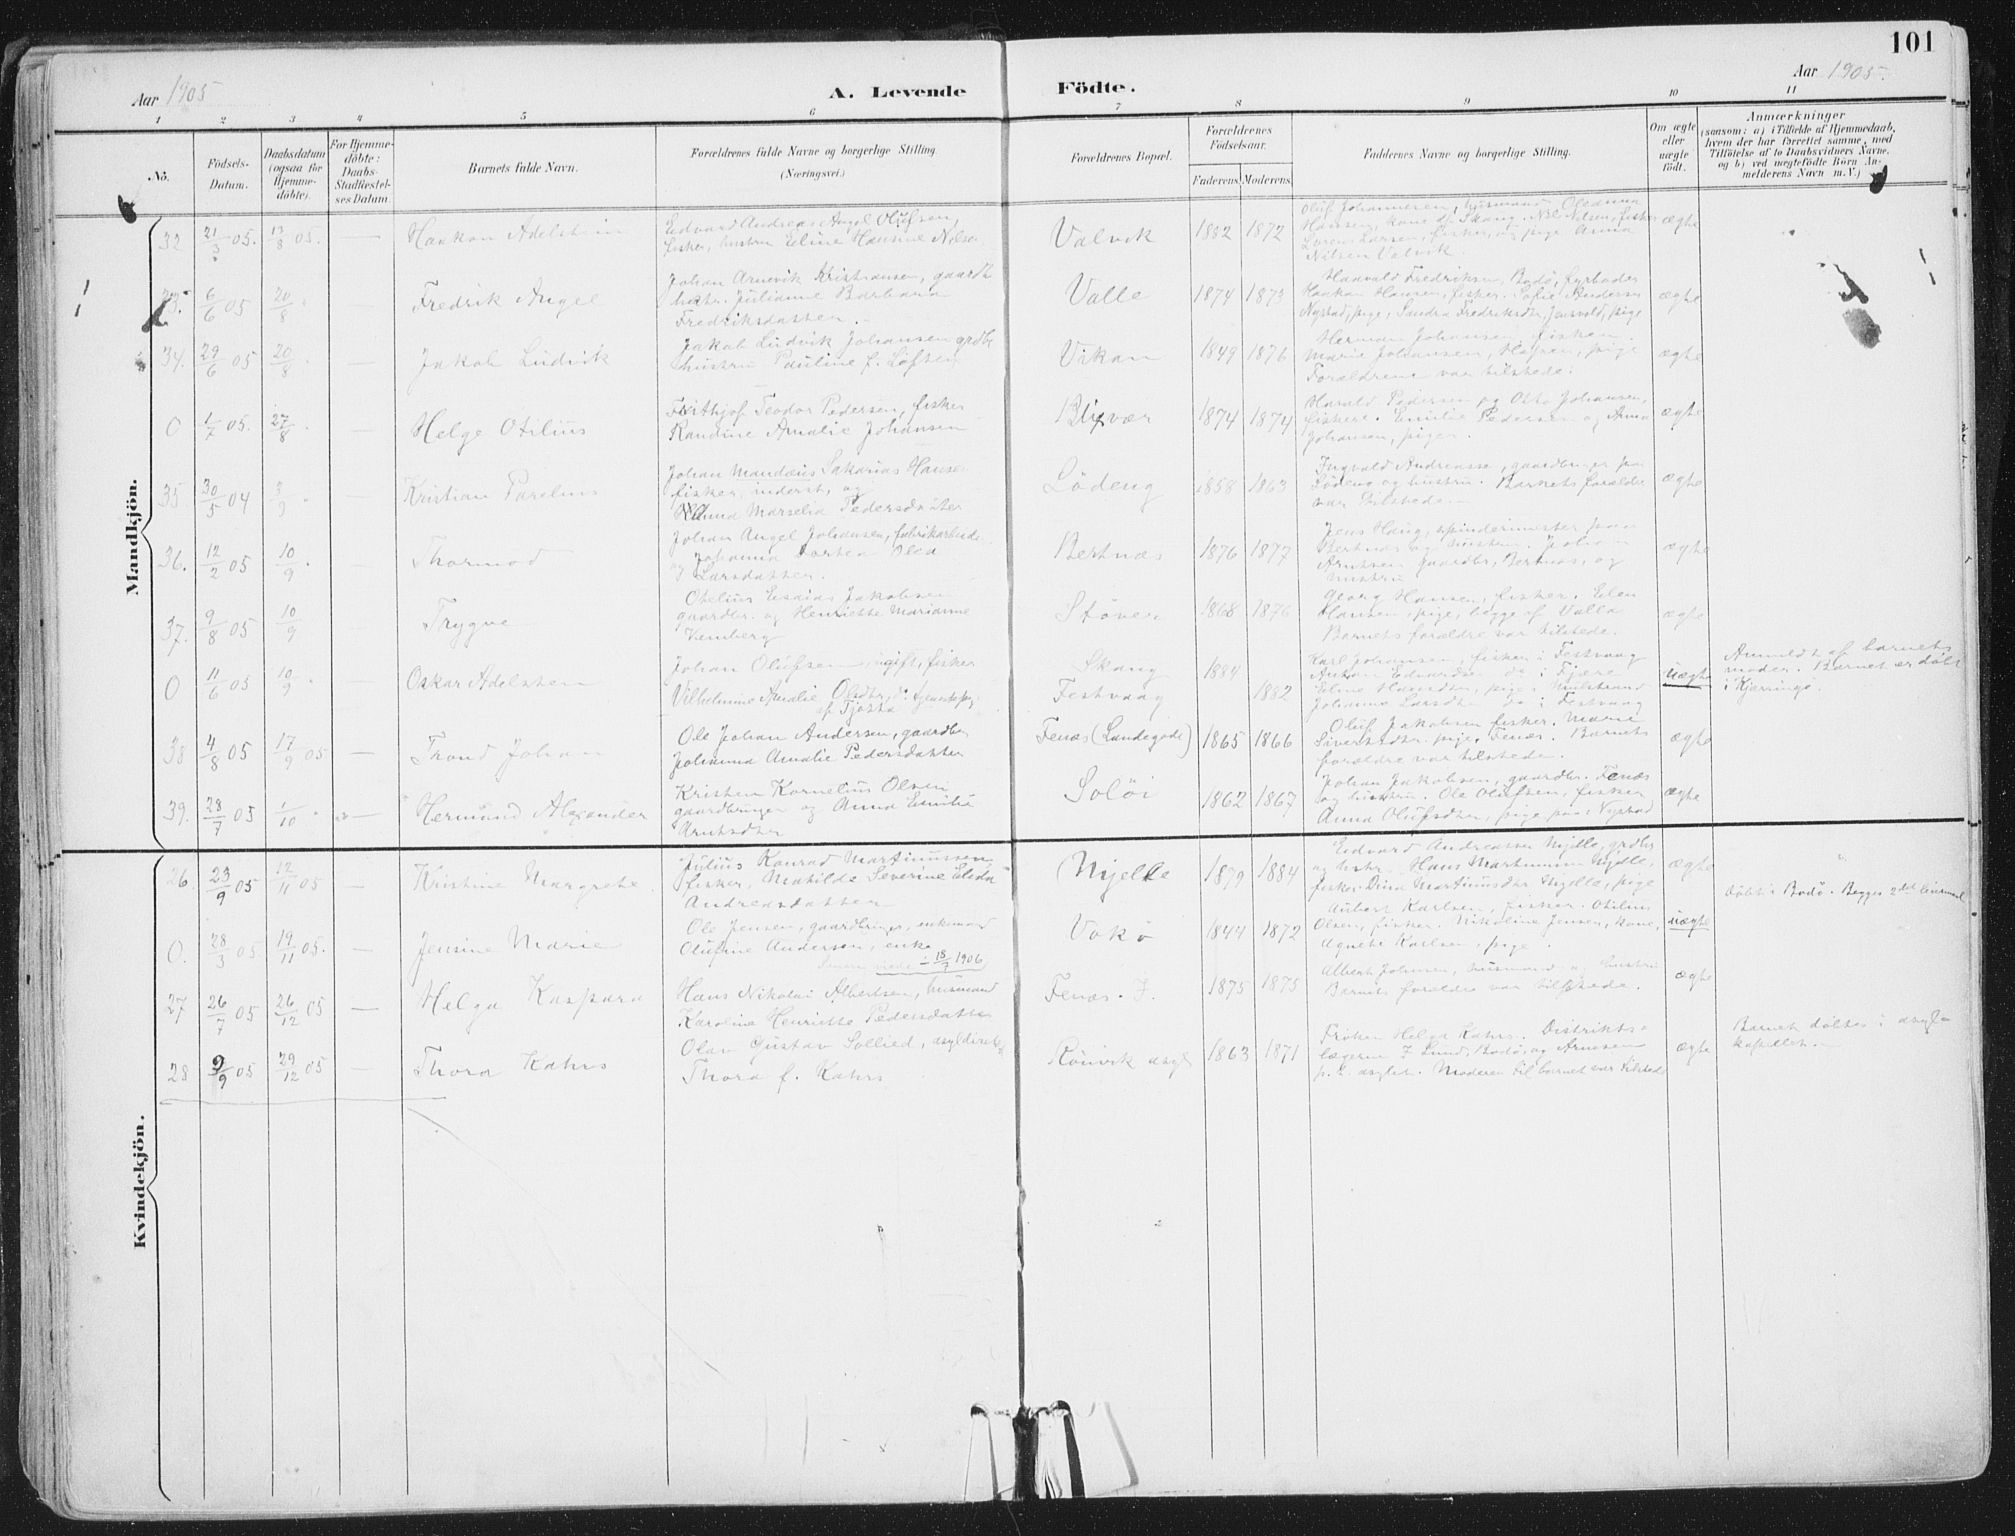 101
Aar 1905
A. Levende Födte.
Aar 1905.
1 2 3 4 5 6 7 8 9 10 11
No.
Födsels-
Datum.
Daabsdatum
(ogsaa for
Hjemme-
döbte).
For Hjemme-
döbte:
Daabs-
Stadfæstel-
ses Datum.
Barnets fulde Navn.
Forældrenes fulde Navne og borgerlige Stilling.
(Næringsvei.)
Forældrenes Bopæl.
Forældrenes
Födselsaar.
Faderens. Moderens.
Faddernes Navne og borgerlige Stilling.
Om ægte
eller
uægte
födt.
Anmærkninger
(saasom: a) i Tilfælde af Hjemmedaab,
hvem der har forrettet samme, med
Tilföielse af to Daabsvidners Navne,
og b) ved uægtefödte Börn An-
melderens Navn m. V.)
Mandkjön.
32 21/3 05. 13/8 05. — Haakon Adelstein
Edvard Andreas Angel Olufsen,
fisker, hustru Eline Hansine Nilsen
Valvik 1882 1872
Oluf Johannesen, husmand, Oleanna
Hansen, kone af Skaug. Nils Nilsen, fisker
Sørens Larsen, fisker, og pige Anna
Nilsen Valvik.
ægte
33. 6/6 05 20/8 — Fredrik Angel
Johan Arnevik Kristiansen, gaardbr
hustr. Julianne Barbara
Fredriksdatter.
Valle 1874 1873
Haavald Fredriksen, Bodø, fyrbøder
Haakon Hansen, fisker. Sofie Andersen
Nystad, pige, Sandra Fredriksdtr, Jensvold, pige
ægte
34. 29/6 05 20/8 — Jakob Ludvik
Jakob Ludvik Johansen grdbr
hustru Pauline f. Løften
Vikan 1849 1876
Herman Johansen, fisker.
Marie Johansen, Hopen, pige
Forældrene var tilstede.
ægte
0 1/7 05. 27/8 — Helge Otilius
Frithjof Teodor Pedersen, fisker
Randine Amalie Johansen
Blixvær 1874 1874
Harald Pedersen og Otto Johansen,
fiskere. Emilie Pedersen og Anna
Johansen, piger.
ægte
35. 30/5 04 3/9 — Kristian Parelius
Johan Mandæus Sakarias Hansen
fisker, inderst, og
Anna Marselia Pedersdatter
Lødeng 1858 1863
Ingvald Andreassen, gaardbruger paa
Lødeng og hustru. Barnets forældre
var tilstede.
ægte
36. 12/2 05 10/9 — Thormod
Johan Angel Johansen, fabrikarbeider
og Johanna Dortea Olea
Larsdatter.
Bertnæs 1876 1877
Jens Haug, spinderimester paa
Bertnæs og hustru. Johan
Arntsen gaardbr, Bertnæs, og
hustru
ægte
37. 9/8 05 10/9 — Trygve
Otelius Esaias Jakobsen
gaardbr. og Henriette Marianne
Kemberg
Støver 1868 1876
Georg Hansen, fisker. Elen
Hansen, pige, begge af Valle
Barnets forældre var tilstede.
ægte
0 11/6 05 10/9 — Oskar Adelsten
Johan Olufsen ugift, fisker
Vilhelmine Amalie Olsdtr, do tjenestepig
af Tjøtta
Skaug 1884
Festvaag 1882
Karl Johansen, fisker i Festvaag
Anton Edvardsen do i Fjære
Eline Hansdtr, pige i Mulstrand
Johanna Larsdtr do i Festvaag
uægte
Anmeldt af barnets
moder. Barnet er døbt
i Kjerringø.
38 4/8 05 17/9 05 — Trond Johan
Ole Johan Andersen, gaardbr
Johanna Amalie Pedersdatter
Fenæs (Landegode) 1865 1866
Oluf Jakobsen fisker. Marie
Sivertsdtr. pige, Fenæs. Barnets
forældre var tilstede.
ægte
39. 28/7 05 1/10 — Hermund Alexander
Kristen Kornelius Olsen
gaardbruger og Anna Emilie
Arntsdtr
Soløi 1862 1867
Johan Jakobsen, gaardbr. Fenæs
og hustru. Ole Olufsen, fisker
Anna Olufsdtr, pige paa Nystad
ægte
Kvindekjön.
26 23/9 05 12/11 05 — Kristine Margrete
Julius Konrad Martinussen
fisker, Mathilde Severine Elida
Andreasdatter
Mjelle 1879 1884
Edvard Andreassen Mjelle, grdbr
og hstr. Hans Martinussen Mjelle,
fisker. Dina Martinusdtr Mjelle, pige
ægte
0. 28/3 05 19/11 05. — Jensine Marie
Ole Jensen, gaardbruger, enkemand
Olufine Andersen, enke
Senere viede 15/7 1906
Vokø 1844 1872
Aubert Karlsen, fisker. Otilius
Olsen, fisker. Nikoline Jensen, kone,
Agnete Karlsen, pige.
uægte
Døbt i Bodø. Begges 2det leiermaal
27 26/7 05 26/12 05 — Helga Kaspara
Hans Nikolai Albertsen, husmand
Karoline Henriette Pedersdatter
Fenæs. 1875 1875
Albert Johnsen, husmand og hustru
Barnets forældre var tilstede.
ægte
28 9/9 05 29/12 05 — Thora Kahrs
Olav Gustav Sollied, asyldirektør
Thora f. Kahrs
Rønvik asyl 1863 1871
Frøken Helga Kahrs. Distrikts-
lægerne F Lund, Bodø, og Arnesen
p. t. asylet. Moderen til barnet var tilstede
ægte
Barnet døbtes i asyl-
kapellet.